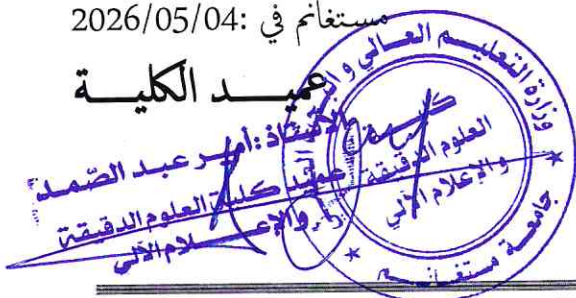 مستغانم في :2026/05/04
عميد الكلية
الأستاذ :أمير عبد الصّمد
عميد كلية العلوم الدقيقة
والإعلام الآلي
وزارة التعليم العالي و البحث
كلية
العلوم الدقيقة
والإعلام الآلي
جامعة مستغانم